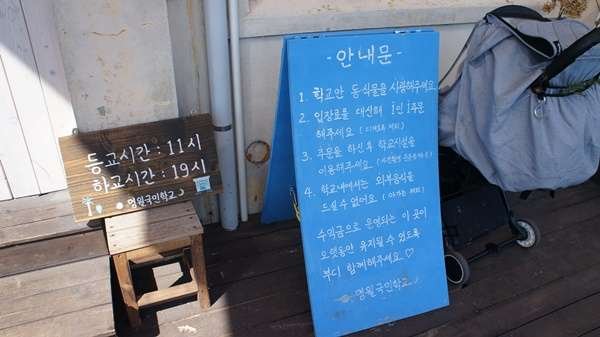 등교시간 : 11시
하교시간 : 19시
명월국민학교
- 안내문 -
1. 학교안 동식물을 사랑해주세요.
2. 입장료을 대신해 1인 1주문
해주세요
3. 주문을 하신 후 학교시설을
이용해주세요
4. 학교내에서는 외부음식을
드실 수 없어요
수익금으로 운영되는 이 곳이
오랫동안 유지될 수 있도록
부디 함께해주세요 ♡
명월국민학교